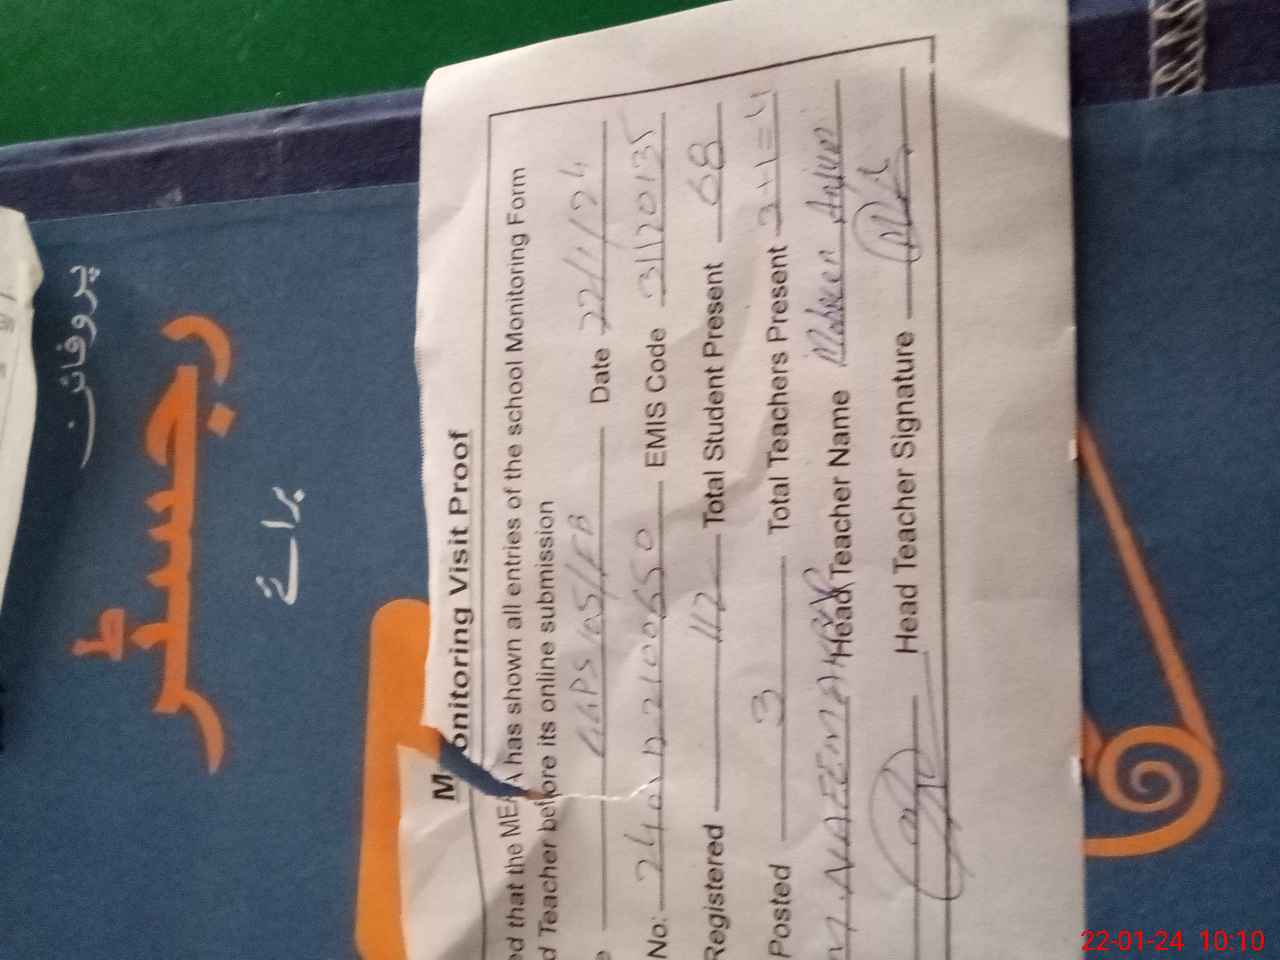 Monitoring Visit Proof
ed that the MEA has shown all entries of the school Monitoring Form
d Teacher before its online submission
GGPS 105/FB Date 22/1/24
No: EMIS Code 31120135
Registered 112 Total Student Present 68
Posted 3 Total Teachers Present 3+1=4
M NAEEM Head Teacher Name Mobeen Anjum
Head Teacher Signature
رجسٹر
برائے
22-01-24 10:10